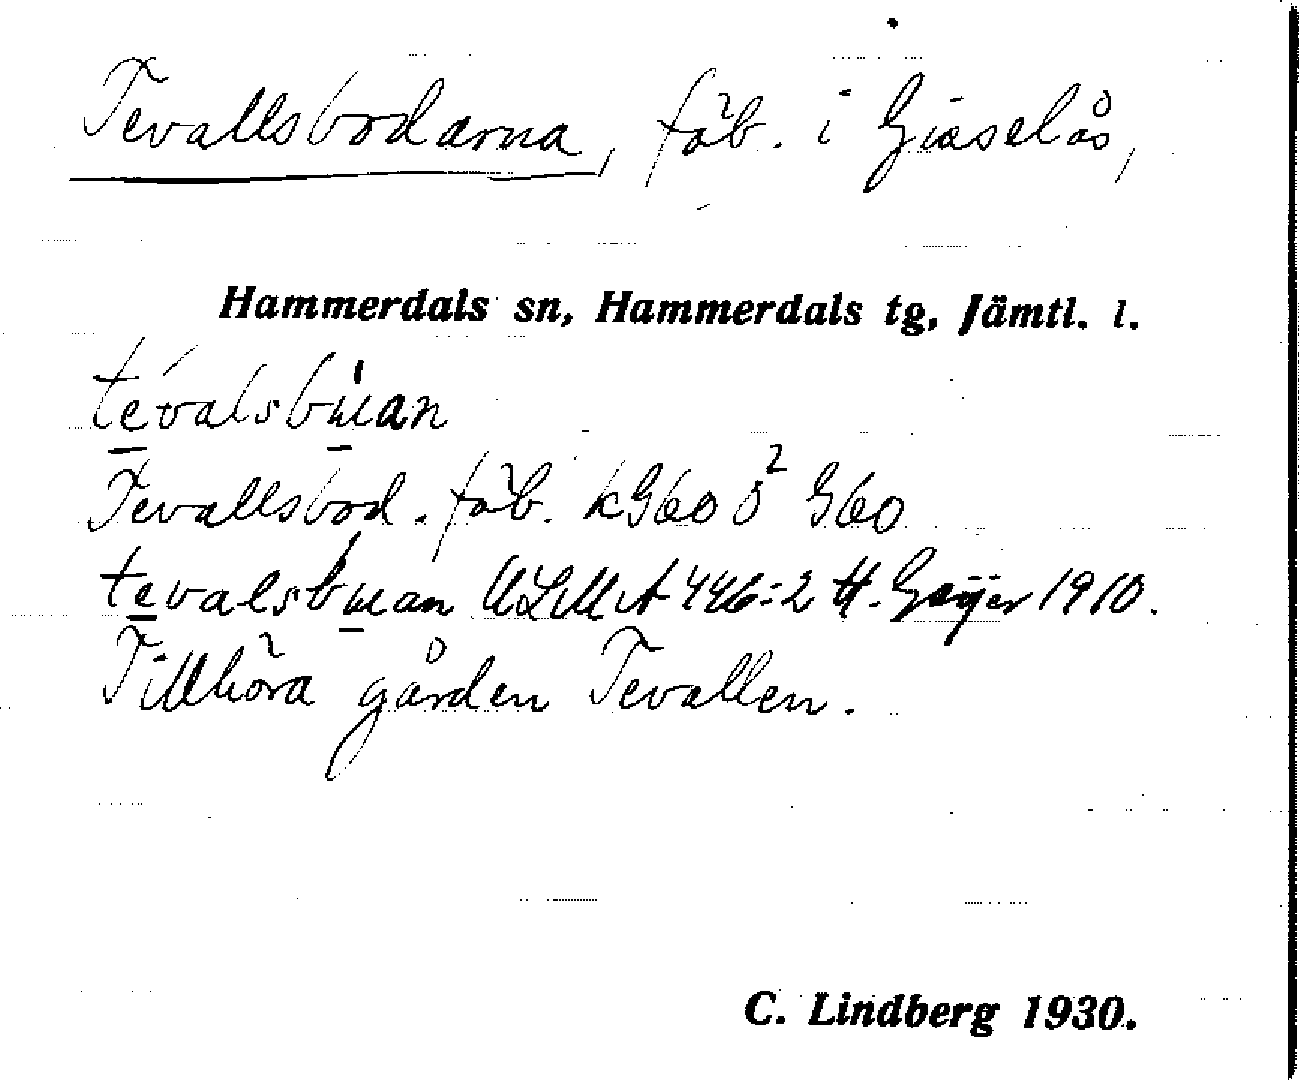 Tevallsbodarna, fäb. i Gisselås,
Hammerdals sn, Hammerdals tg, Jämtl. l.
tevalsbuan
Tevallsbod. fäb. kG60 ö² G60
tevalsbuan ULMA 446:2 H. Geijer 1910.
Tillhöra gården Tevallen.
C. Lindberg 1930.